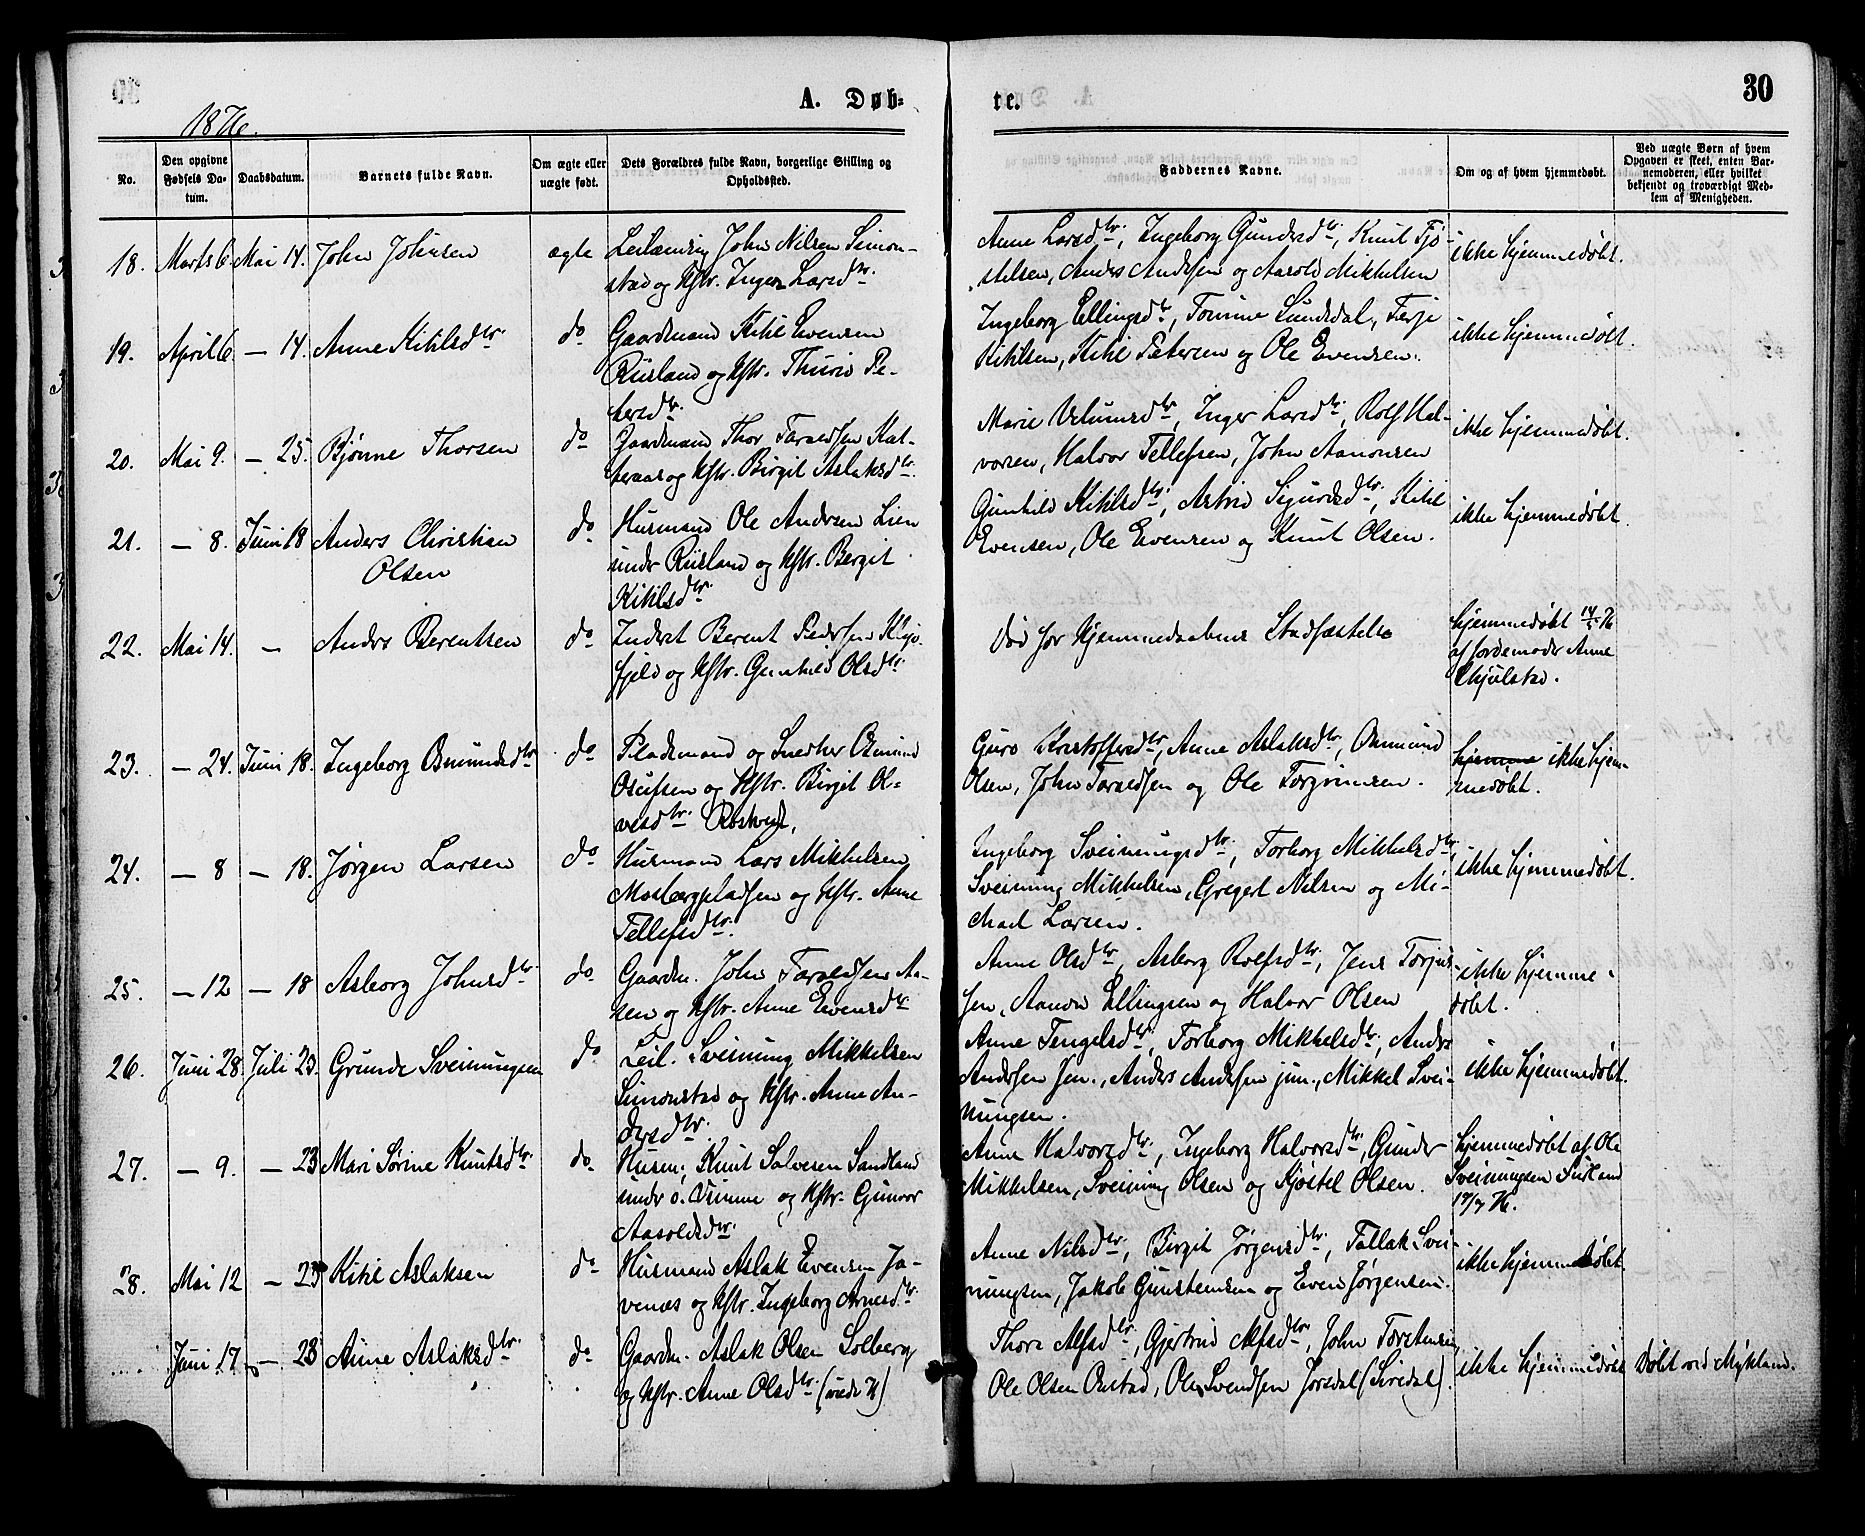 A. Døb-
te.
30
1876.
No.
Den opgivne Fødsels Da-tum.
Daabsdatum.
Barnets fulde Navn.
Om ægte eller uægte født.
Dets Forældres fulde Navn, borgerlige Stilling og Opholdssted.
Faddernes Navne.
Om og af hvem hjemmedøbt.
Ved uægte Børn af hvem Opgaven er skeet, enten Bar-nemoderen, eller hvilket bekjendt og troværdigt Med-lem af Menigheden.
18. Marts 6 Mai 14. John Johnsen ægte
Leilænding John Nilsen Simon-
stad og Hstr. Inger Larsdtr.
Anne Larsdtr., Ingeborg Gundersdtr., Knut Tjø-
stelsen, Anders Andersen og Aasold Mikkelsen
ikke hjemmedøbt.
19. April 6 — 14. Anne Kitilsdtr. do
Gaardmand Kitil Evensen
Risland og Hstr. Thurid Pe-
tersdtr.
Ingeborg Ellingsdtr., Tomine Sundsdal, Terje
Kitilsen, Kitil Petersen og Ole Evensen.
ikke hjemmedøbt.
20. Mai 9. — 25. Bjønne Thorsen do
Gaardmand Thor Taraldsen Kat-
teraas og Hstr. Birgit Aslaksdtr.
Marie dtr., Inger Larsdtr., Rolf Hal-
vorsen, Halvor Tellefsen, John Aanonsen
ikke hjemmedøbt.
21. — 8. Juni 18 Anders Christian
Olsen
do
Husmand Ole Andersen Lien
under Risland og Hstr. Bergit
Kitilsdtr.
Gunhild Kitilsdtr., Astrid Sigurdsdtr., Kitil
Evensen, Ole Evensen og Knut Olsen.
ikke hjemmedøbt.
22. Mai 14. — Anders Berentsen do
Inderst Berent Pedersen
fjeld og Hstr. Gunhild Olsdtr.
Død før Hjemmedaabens Stadfæstelse
hjemmedøbt 14/5 76
af Jordemoder Anne
23. — 24. Juni 18. Ingeborg Osmundsdtr do
Pladsmand og Snedker Osmund
Osulfsen og Hstr. Birgit Ol-
vesdtr. Røskvist,
Guro Kristoffersdtr, Anne Aslaksdtr, Osmund
Olsen, John Taraldsen og Ole Torgrimsen.
hjemme ikke hjem-
medøbt.
24. — 8 — 18. Jørgen Larsen do
Husmand Lars Mikkelsen
Mosbergpladsen og Hstr. Anne
Tellefsdtr.
Ingeborg Sveinungsdtr., Torborg Mikkelsdtr.,
Sveinung Mikkelsen, Gregert Nilsen og Mi-
chael Larsen.
ikke hjemmedøbt.
25. — 12 — 18 Asborg Johnsdtr. do
Gaardm. John Taraldsen Aa-
sen og Hstr. Anne Evensdtr
Anne Olsdtr., Asborg Rolfsdtr., Jens Torjus-
sen, Aanon Ellingsen og Halvor Olsen
ikke hjemme-
døbt.
26. Juni 28. Juli 23. Grunde Sveinungsen do
Leil. Sveinung Mikkelsen
Simonstad og Hstr. Anne An-
dersdtr.
Anne Tengelsdtr., Torborg Mikkelsdtr., Anders
Andersen sen., Anders Andersen jun., Mikkel Svei-
nungsen.
ikke hjemmedøbt.
27. — 9. — 23 Mari Sørine Knutsdtr. do
Husm. Knut Salvesen Sandland
under ø. Vimme og Hstr. Gunvor
Aasoldsdtr.
Anne Halvorsdtr., Ingeborg Halvorsdtr., Gunder
Mikkelsen, Sveinung Olsen og Kjøstel Olsen.
hjemmedøbt af Ole
Sveinungsen
/7 76.
28. Mai 12 — 23 Kitil Aslaksen do
Husmand Aslak Evensen Jo-
venæs og Hstr. Ingeborg Arnesdtr.
Anne Nilsdtr., Birgit Jørgensdtr., Tallak Svei-
nungsen, Jakob Gunstensen og Even Jørgensen.
ikke hjemmedøbt.
Juni 17 — 23 Anne Aslaksdtr. do
Gaardm. Aslak Olsen Solberg
og Hstr. Anne Olsdtr.
Thora Alfsdtr., Gjertrud Alfsdtr., John Torstensen
Ole Olsen Oustad, Ole Svendsen Jorsdal (Siredal).
ikke hjemmedøbt
Døbt ved Mykland.